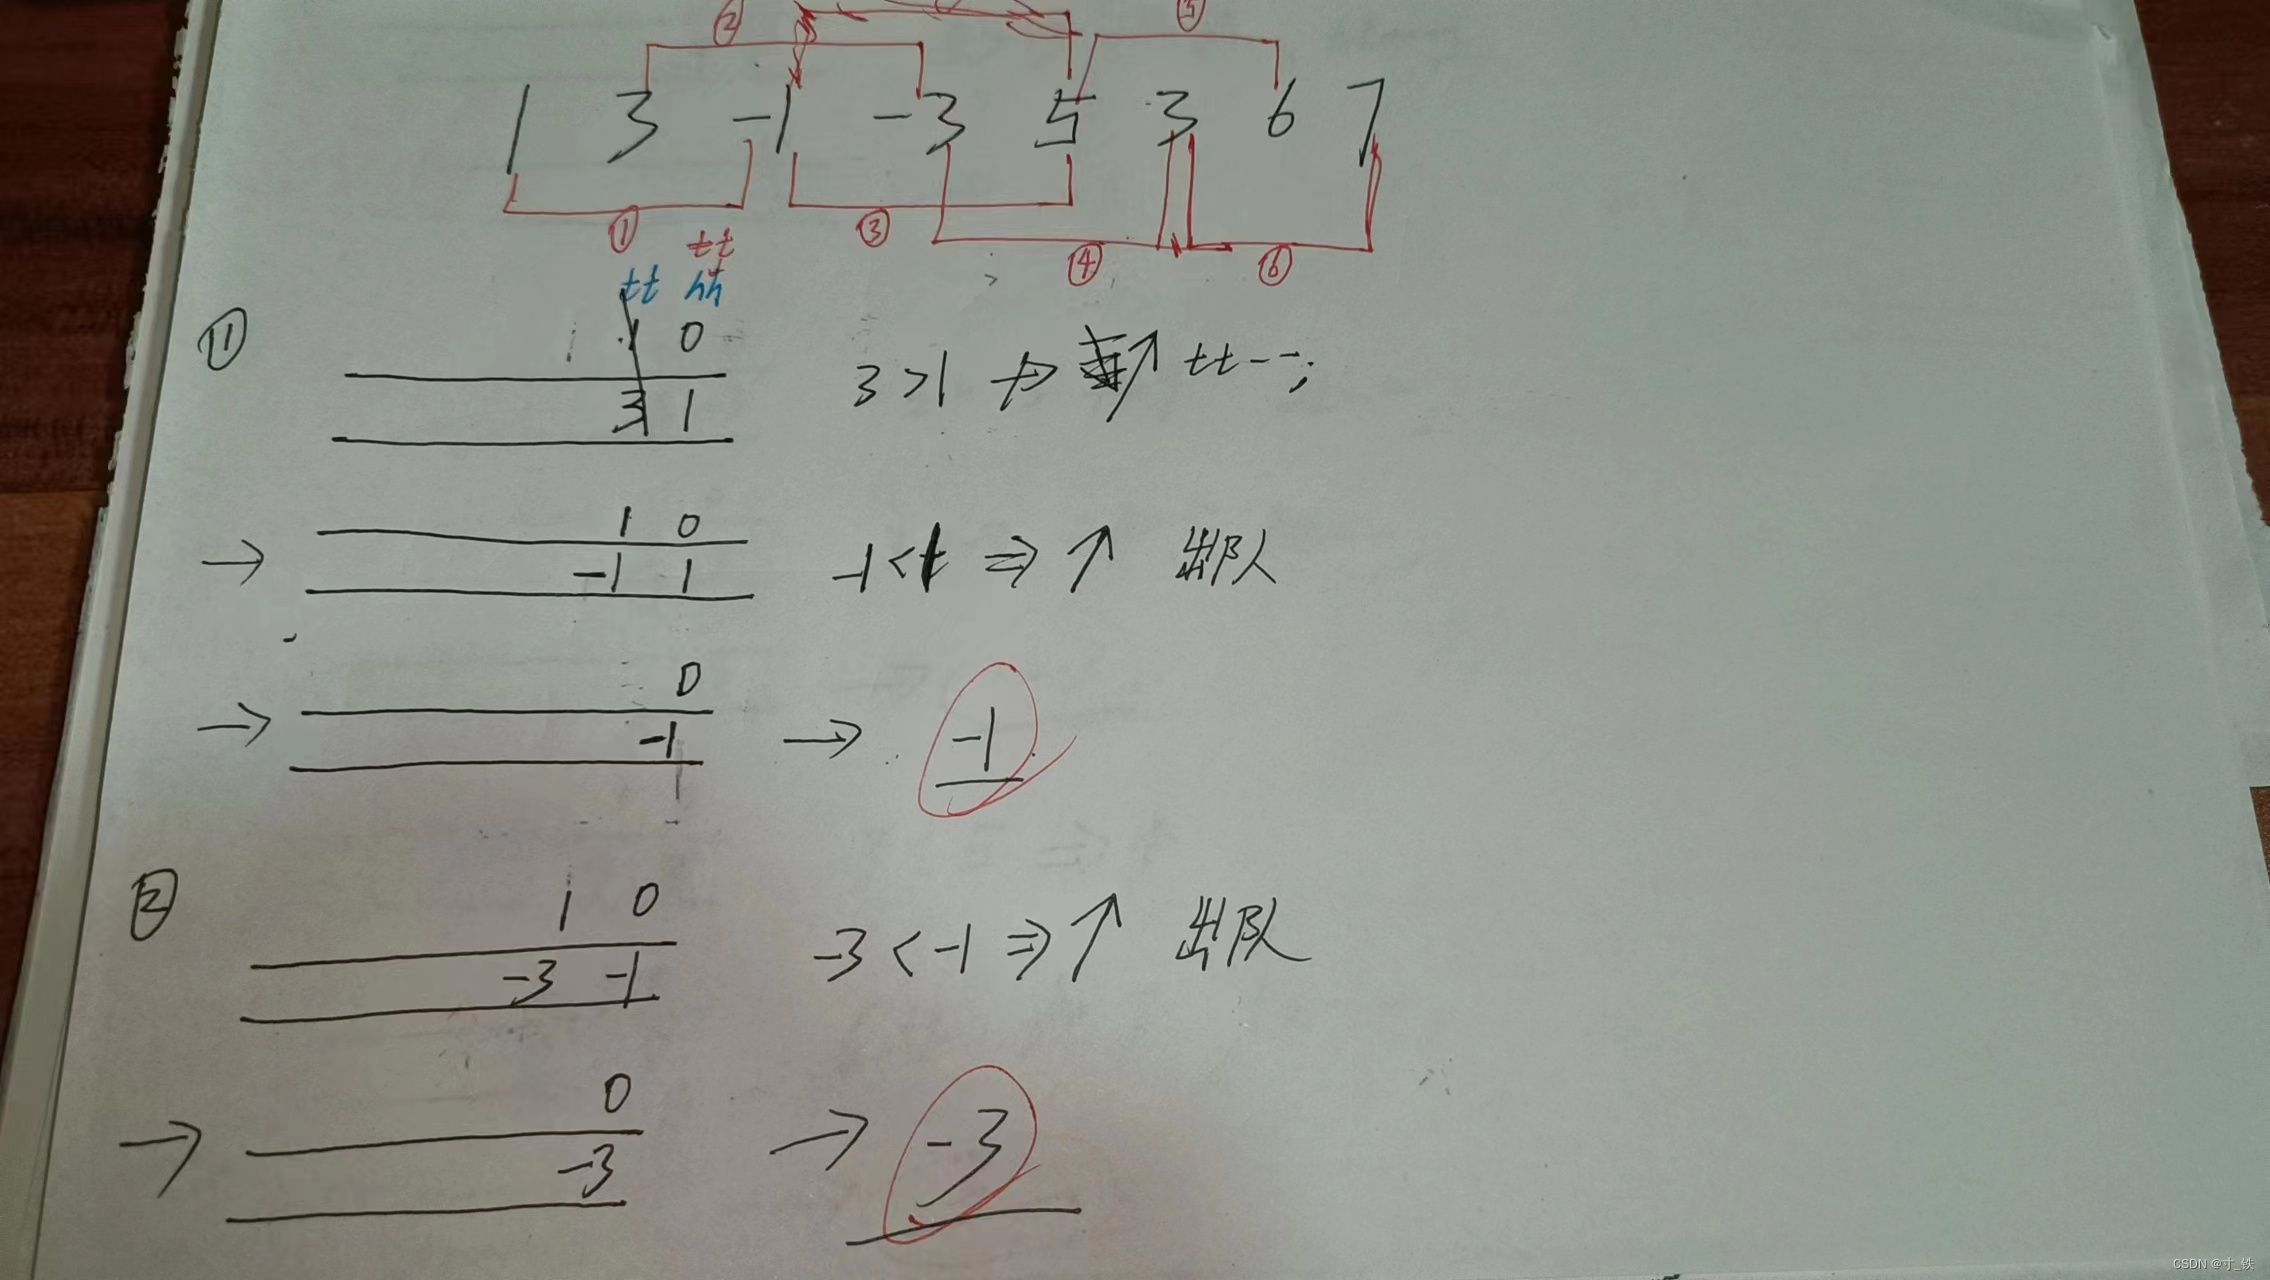 ② ⑤
1 3 -1 -3 5 3 6 7
① ③ ④ ⑥
tt
tt hh
① 1 0
3 1 3>1 ⇒ ↑ tt--;
1 0
→ -1 1 -1<1 ⇒ ↑ 出队
0
→ -1 → -1
② 1 0
-3 -1 -3<-1 ⇒ ↑ 出队
0
→ -3 → -3
CSDN @寸_铁